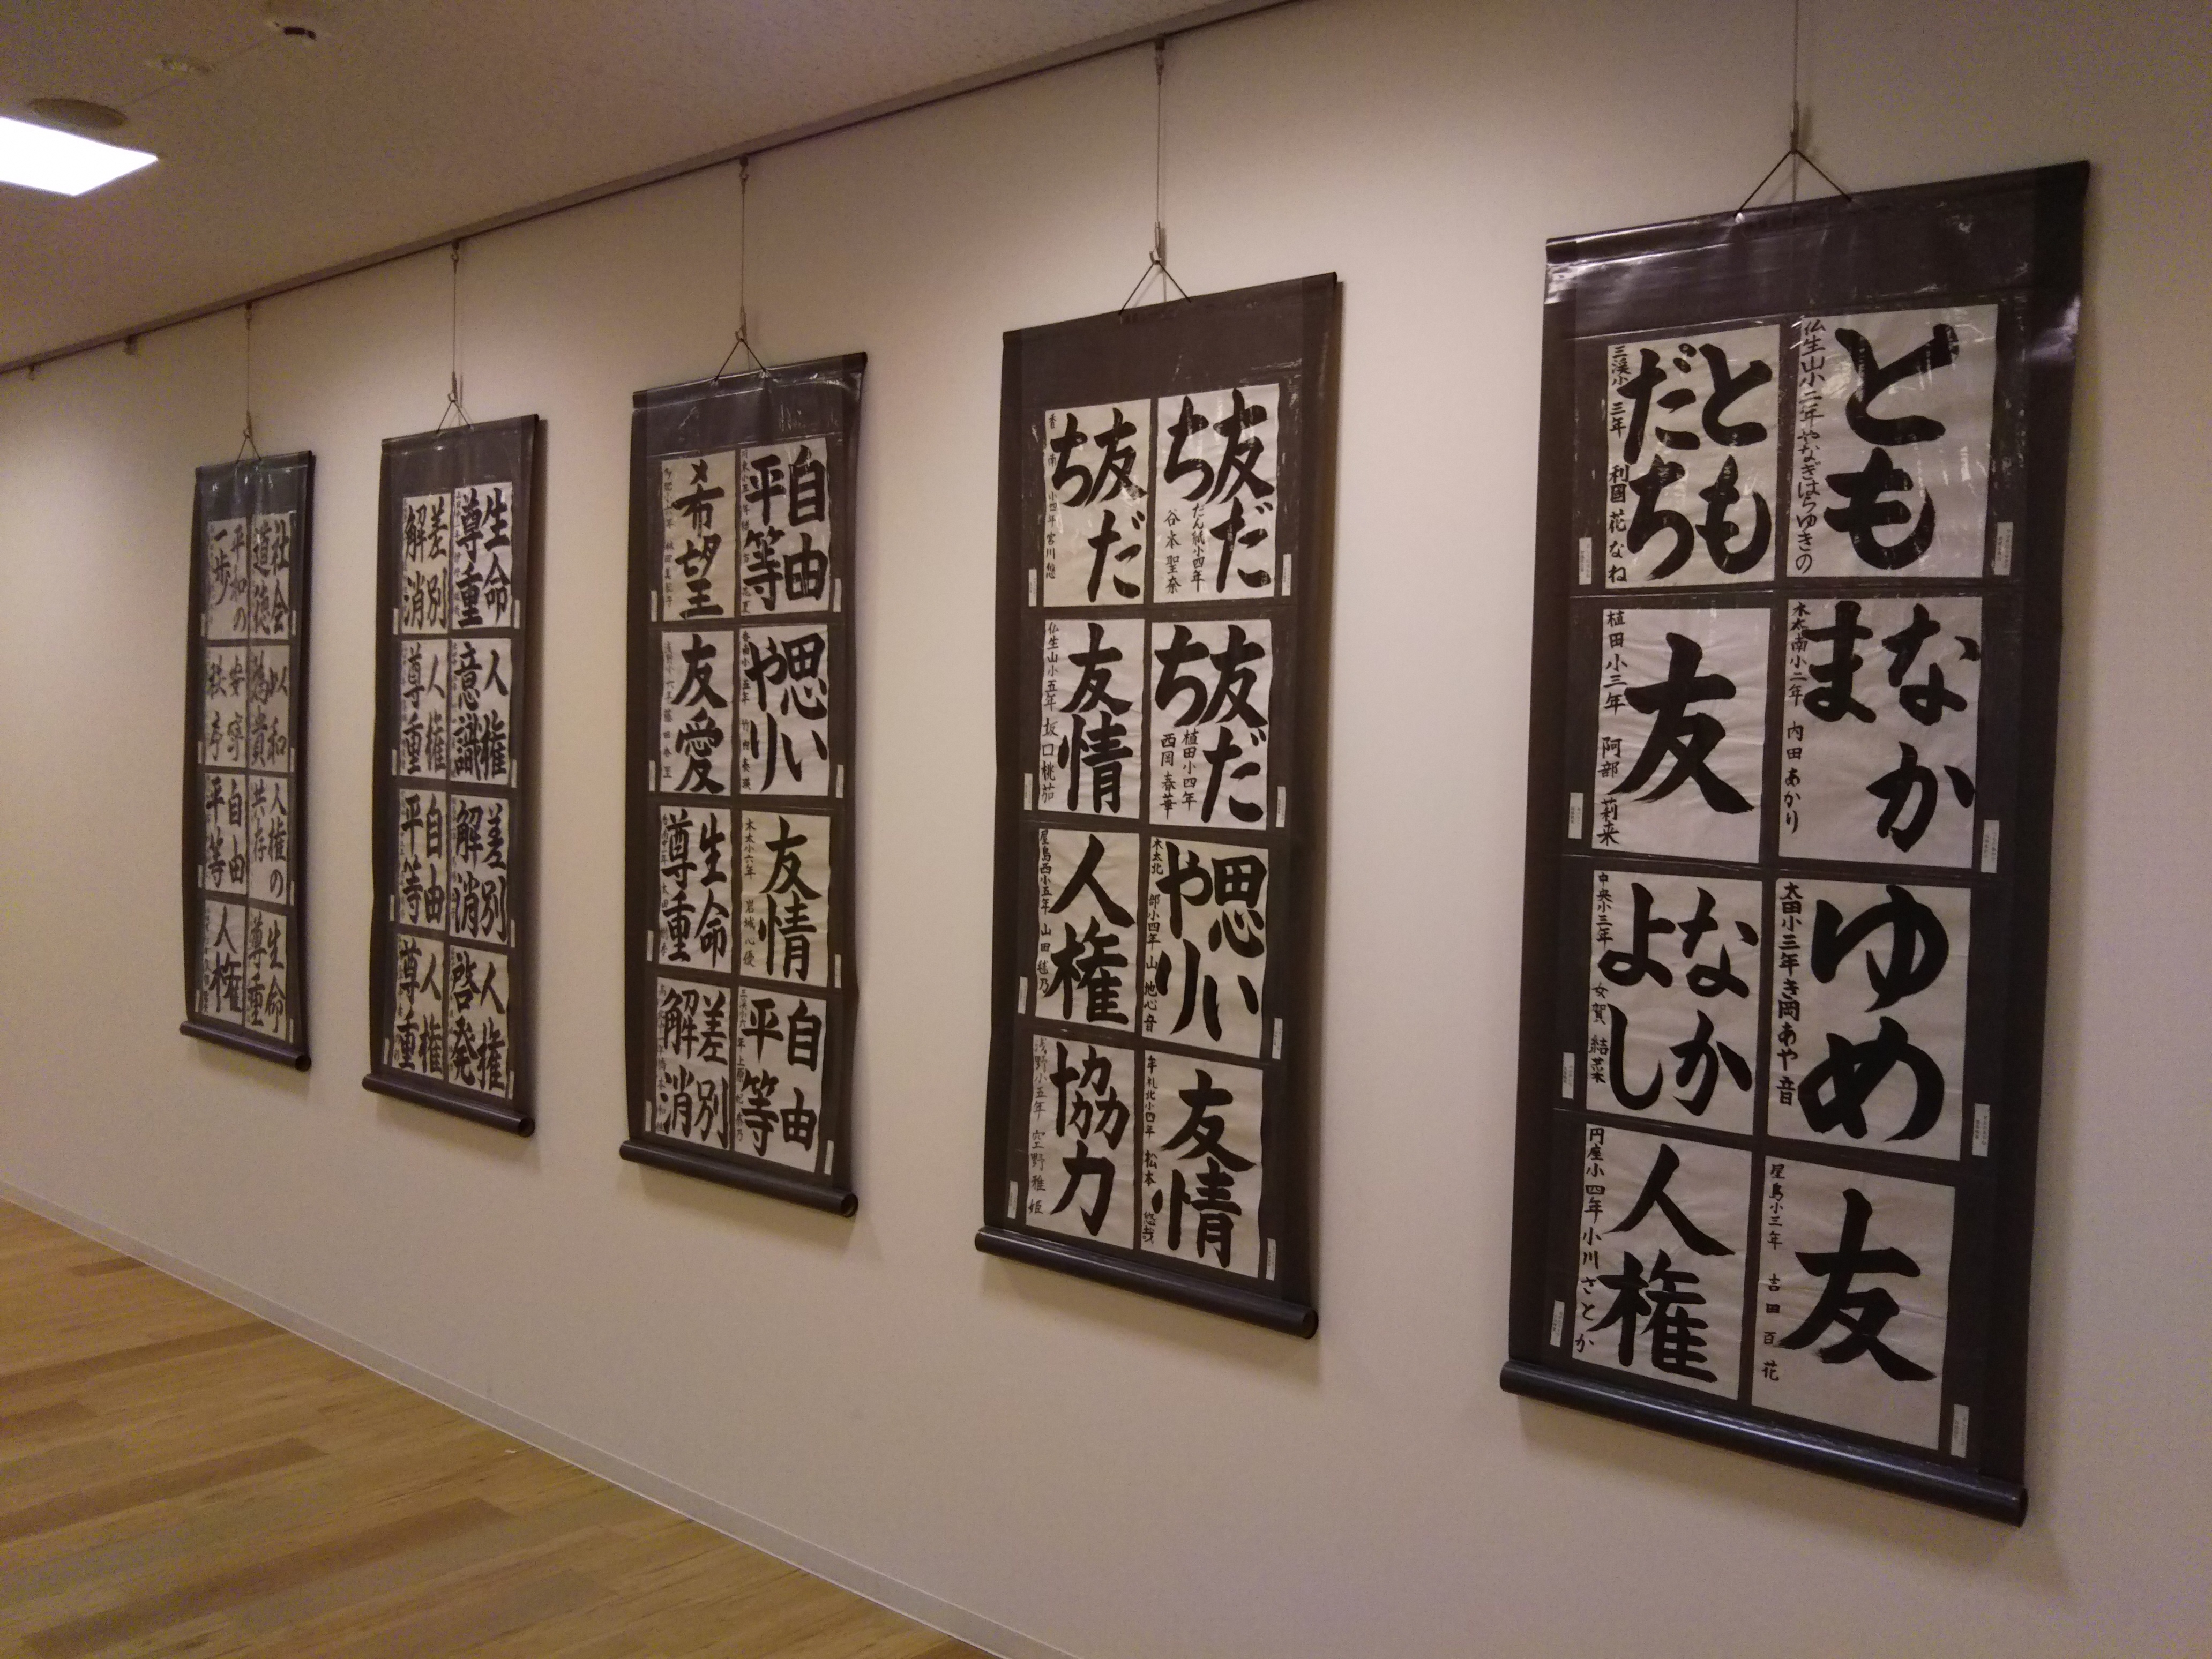 とも
仏生山小二年やなぎはらゆきの
ともだち
三渓小三年 利國 花なね
なかま
木太南小二年 内田あかり
友
植田小三年 阿部 莉来
ゆめ
太田小三年 き岡あや音
なかよし
中央小三年 女賀 結菜
友
屋島小三年 吉田百花
人権
円座小四年 小川さとか
友だち
だん紙小四年 谷本聖奈
友だち
香南小四年 宮川悠
友だち
植田小四年 西岡春華
友情
仏生山小五年 坂口桃茄
思いやり
木太北部小四年 山地心音
人権
屋島西小五年 山田毬乃
友情
牟礼北小四年 松本悠哉
協力
浅野小五年 空野雅姫
自由平等
希望
思いやり
友愛
友情
木太小六年 岩城心優
生命尊重
自由平等
差別解消
生命尊重
差別解消
人権意識
人権尊重
差別解消
自由平等
人権啓発
人権尊重
社会道徳
平和の一歩
以和為貴
安寧秩序
人権の共存
自由平等
生命尊重
人権